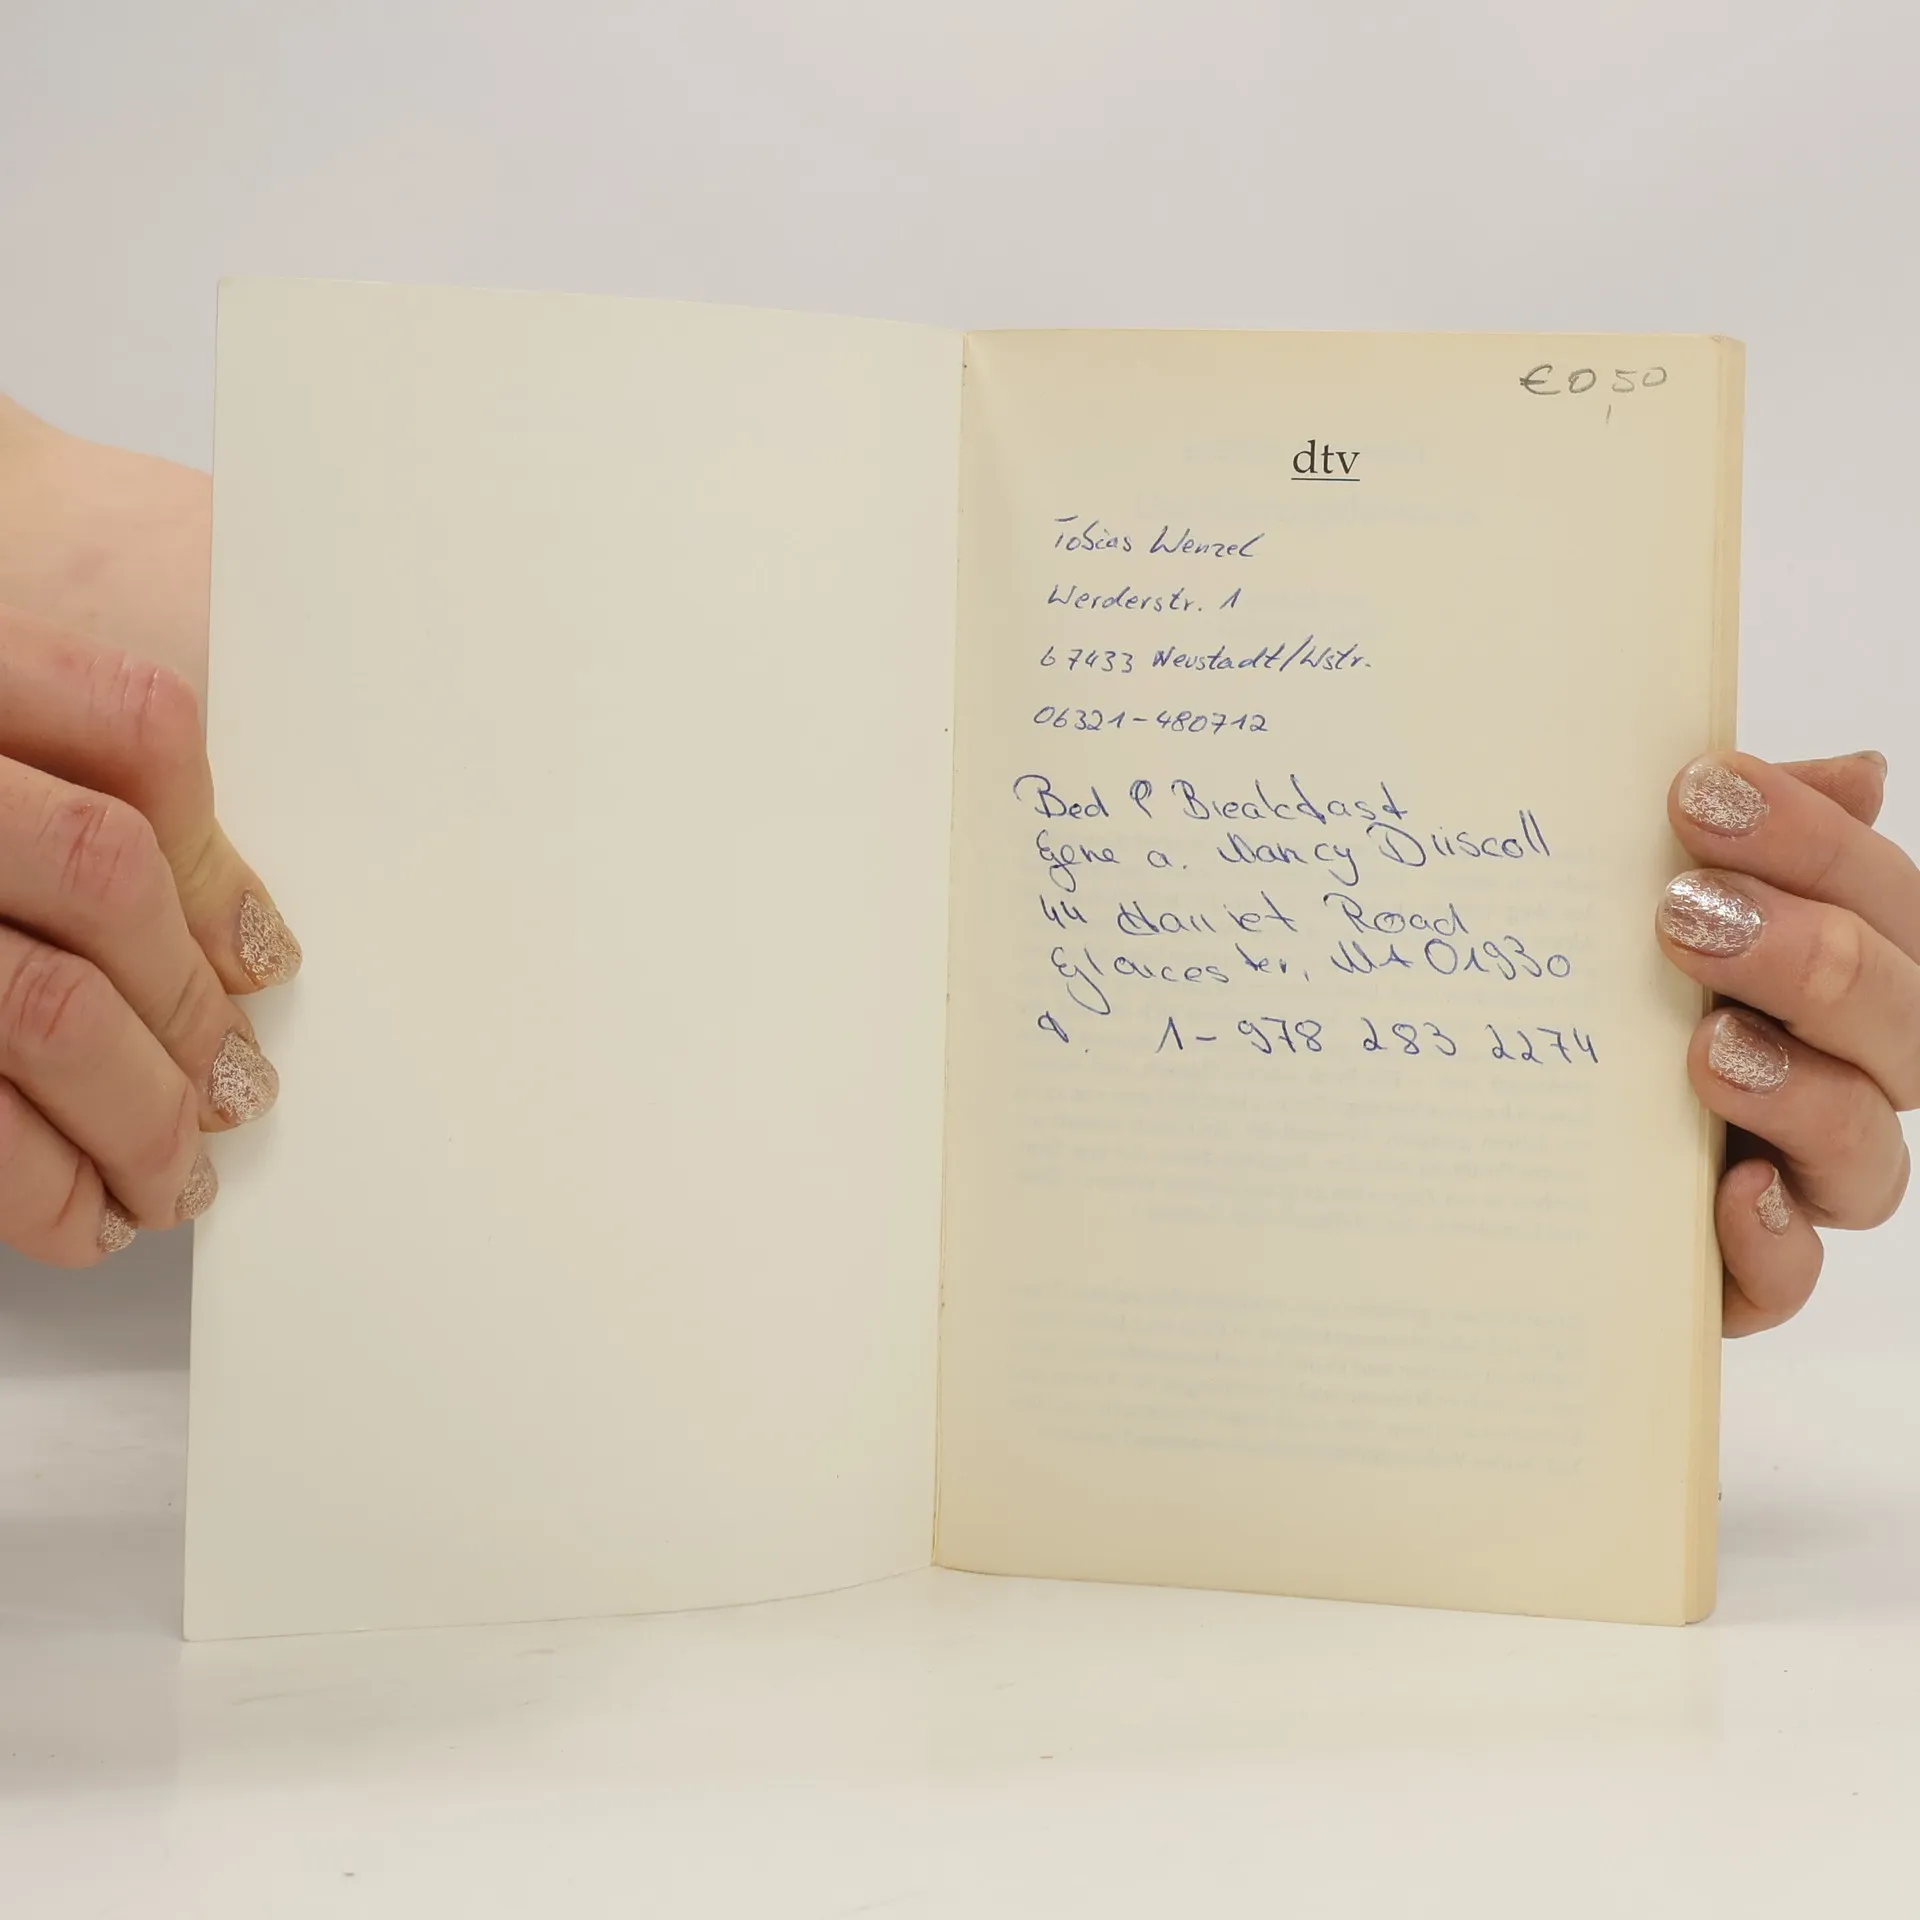 €0,50
dtv
Tobias Wenzel
Werderstr. 1
67433 Neustadt/Wstr.
06321-480712
Bed & Breakfast
Gene a. Nancy Driscoll
44 Harriet Road
Gloucester, MA 01930
1- 978 283 2274